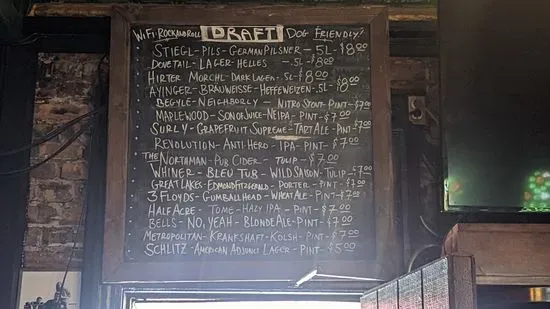 WiFi-ROCKANDROLL DRAFT DOG FRIENDLY!
STIEGL-PILS-GERMAN PILSNER-.5L-$8.00
DOVETAIL-LAGER-HELLES -.5L-$8.00
HIRTER MORCHL-DARK LAGER-.5L-$8.00
AYINGER-BRAUWEISSE-HEFFEWEIZEN-.5L-$8.00
BEGYLE-NEIGHBORLY - NITRO STOUT-PINT-$7.00
MAPLEWOOD-SON OF JUICE-NEIPA-PINT-$7.00
SURLY-GRAPEFRUIT SUPREME-TART ALE-PINT-$7.00
REVOLUTION-ANTI-HERO-IPA-PINT-$7.00
THE NORTHMAN-PUB CIDER-TULIP-$7.00
WHINER-BLEU TUB-WILD SAISON-TULIP-$7.00
GREAT LAKES-EDMOND FITZGERALD-PORTER-PINT-$7.00
3 FLOYDS-GUMBALLHEAD-WHEAT ALE-PINT-$7.00
HALF ACRE-TOME-HAZY IPA-PINT-$7.00
BELLS-NO, YEAH-BLONDE ALE-PINT-$7.00
METROPOLITAN-KRANKSHAFT-KOLSH-PINT-$7.00
SCHLITZ-AMERICAN ADJUNCT LAGER-PINT-$5.00